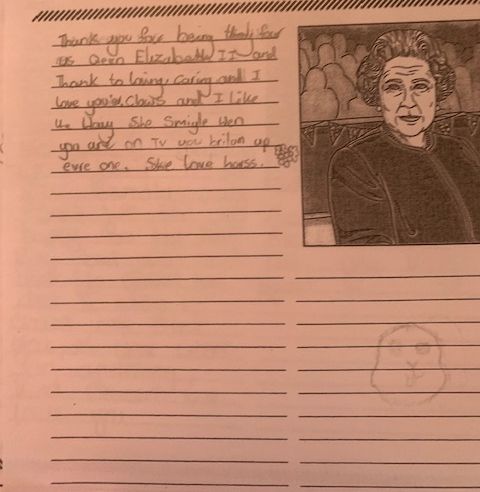 Thank you for being thek for
us Qeen Elizabeth II and
Thank to loving, caring and I
love your Clows and I like
the way She Smigle wen
you are on TV you britan up
evre one. She love horss.